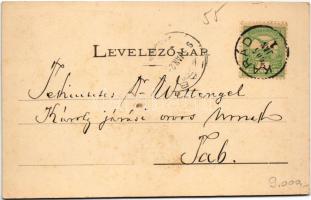 55
LEVELEZŐ-LAP.
KARÁD
Tekintetes Dr Wettengel
Károly járási orvos úrnak
Tab.
9.000,-